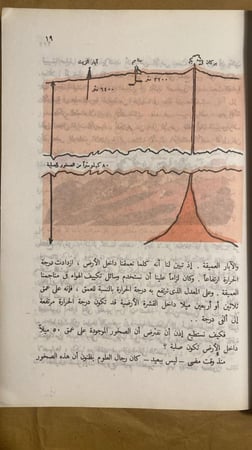 ١٩
بركان
مناجم
آبار الزيت
٣٢٠٠ متر
٦٤٠٠ متر
٨٠ كيلومتراً من الصخور الصلبة
والآبار العميقة . إذ تبين لنا أنه كلما تعمقنا داخل الأرض ، ازدادت درجة
الحرارة ارتفاعاً . وكان لزاماً علينا أن نستخدم وسائل تكييف الهواء فى مناجمنا
العميقة . وعلى المعدل الذى ترتفع به درجة الحرارة بالنسبة للعمق ، فإنه على عمق
ثلاثين أو أربعين ميلا داخل القشرة الأرضية قد تكون درجة الحرارة مرتفعة
إلى ألفى درجة .
فكيف نستطيع إذن أن نفترض أن الصخور الموجودة على عمق ٥٠ ميلا
داخل الأرض تكون صلبة ؟
منذ وقت مضى – ليس ببعيد – كان رجال العلوم يظنون أن هذه الصخور